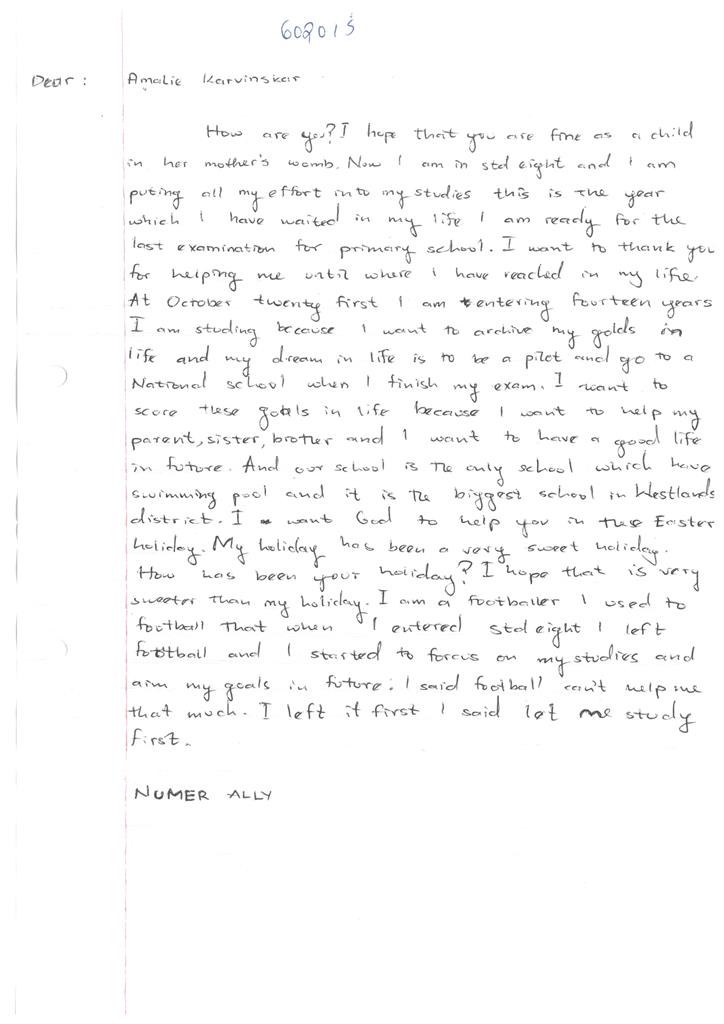 602015
Dear: Amalie Karvinskar
How are you? I hope that you are fine as a child
in her mother's womb. Now I am in std eight and I am
puting all my effort into my studies this is the year
which I have waited in my life I am ready for the
last examination for primary school. I want to thank you
for helping me until where I have reached in my life.
At October twenty first I am entering fourteen years
I am studing because I want to archive my golds in
life and my dream in life is to be a pilot and go to a
National school when I finish my exam. I want to
score these goals in life because I want to help my
parent, sister, brother and I want to have a good life
in future. And our school is the only school which have
swimming pool and it is the biggest school in Westlands
district. I want God to help you in these Easter
holiday. My holiday has been a very sweet holiday.
How has been your holiday? I hope that is very
sweeter than my holiday. I am a footballer I used to
football that when I entered std eight I left
football and I started to forcus on my studies and
aim my goals in future. I said football can't help me
that much. I left it first I said let me study
first.
NUMER ALLY